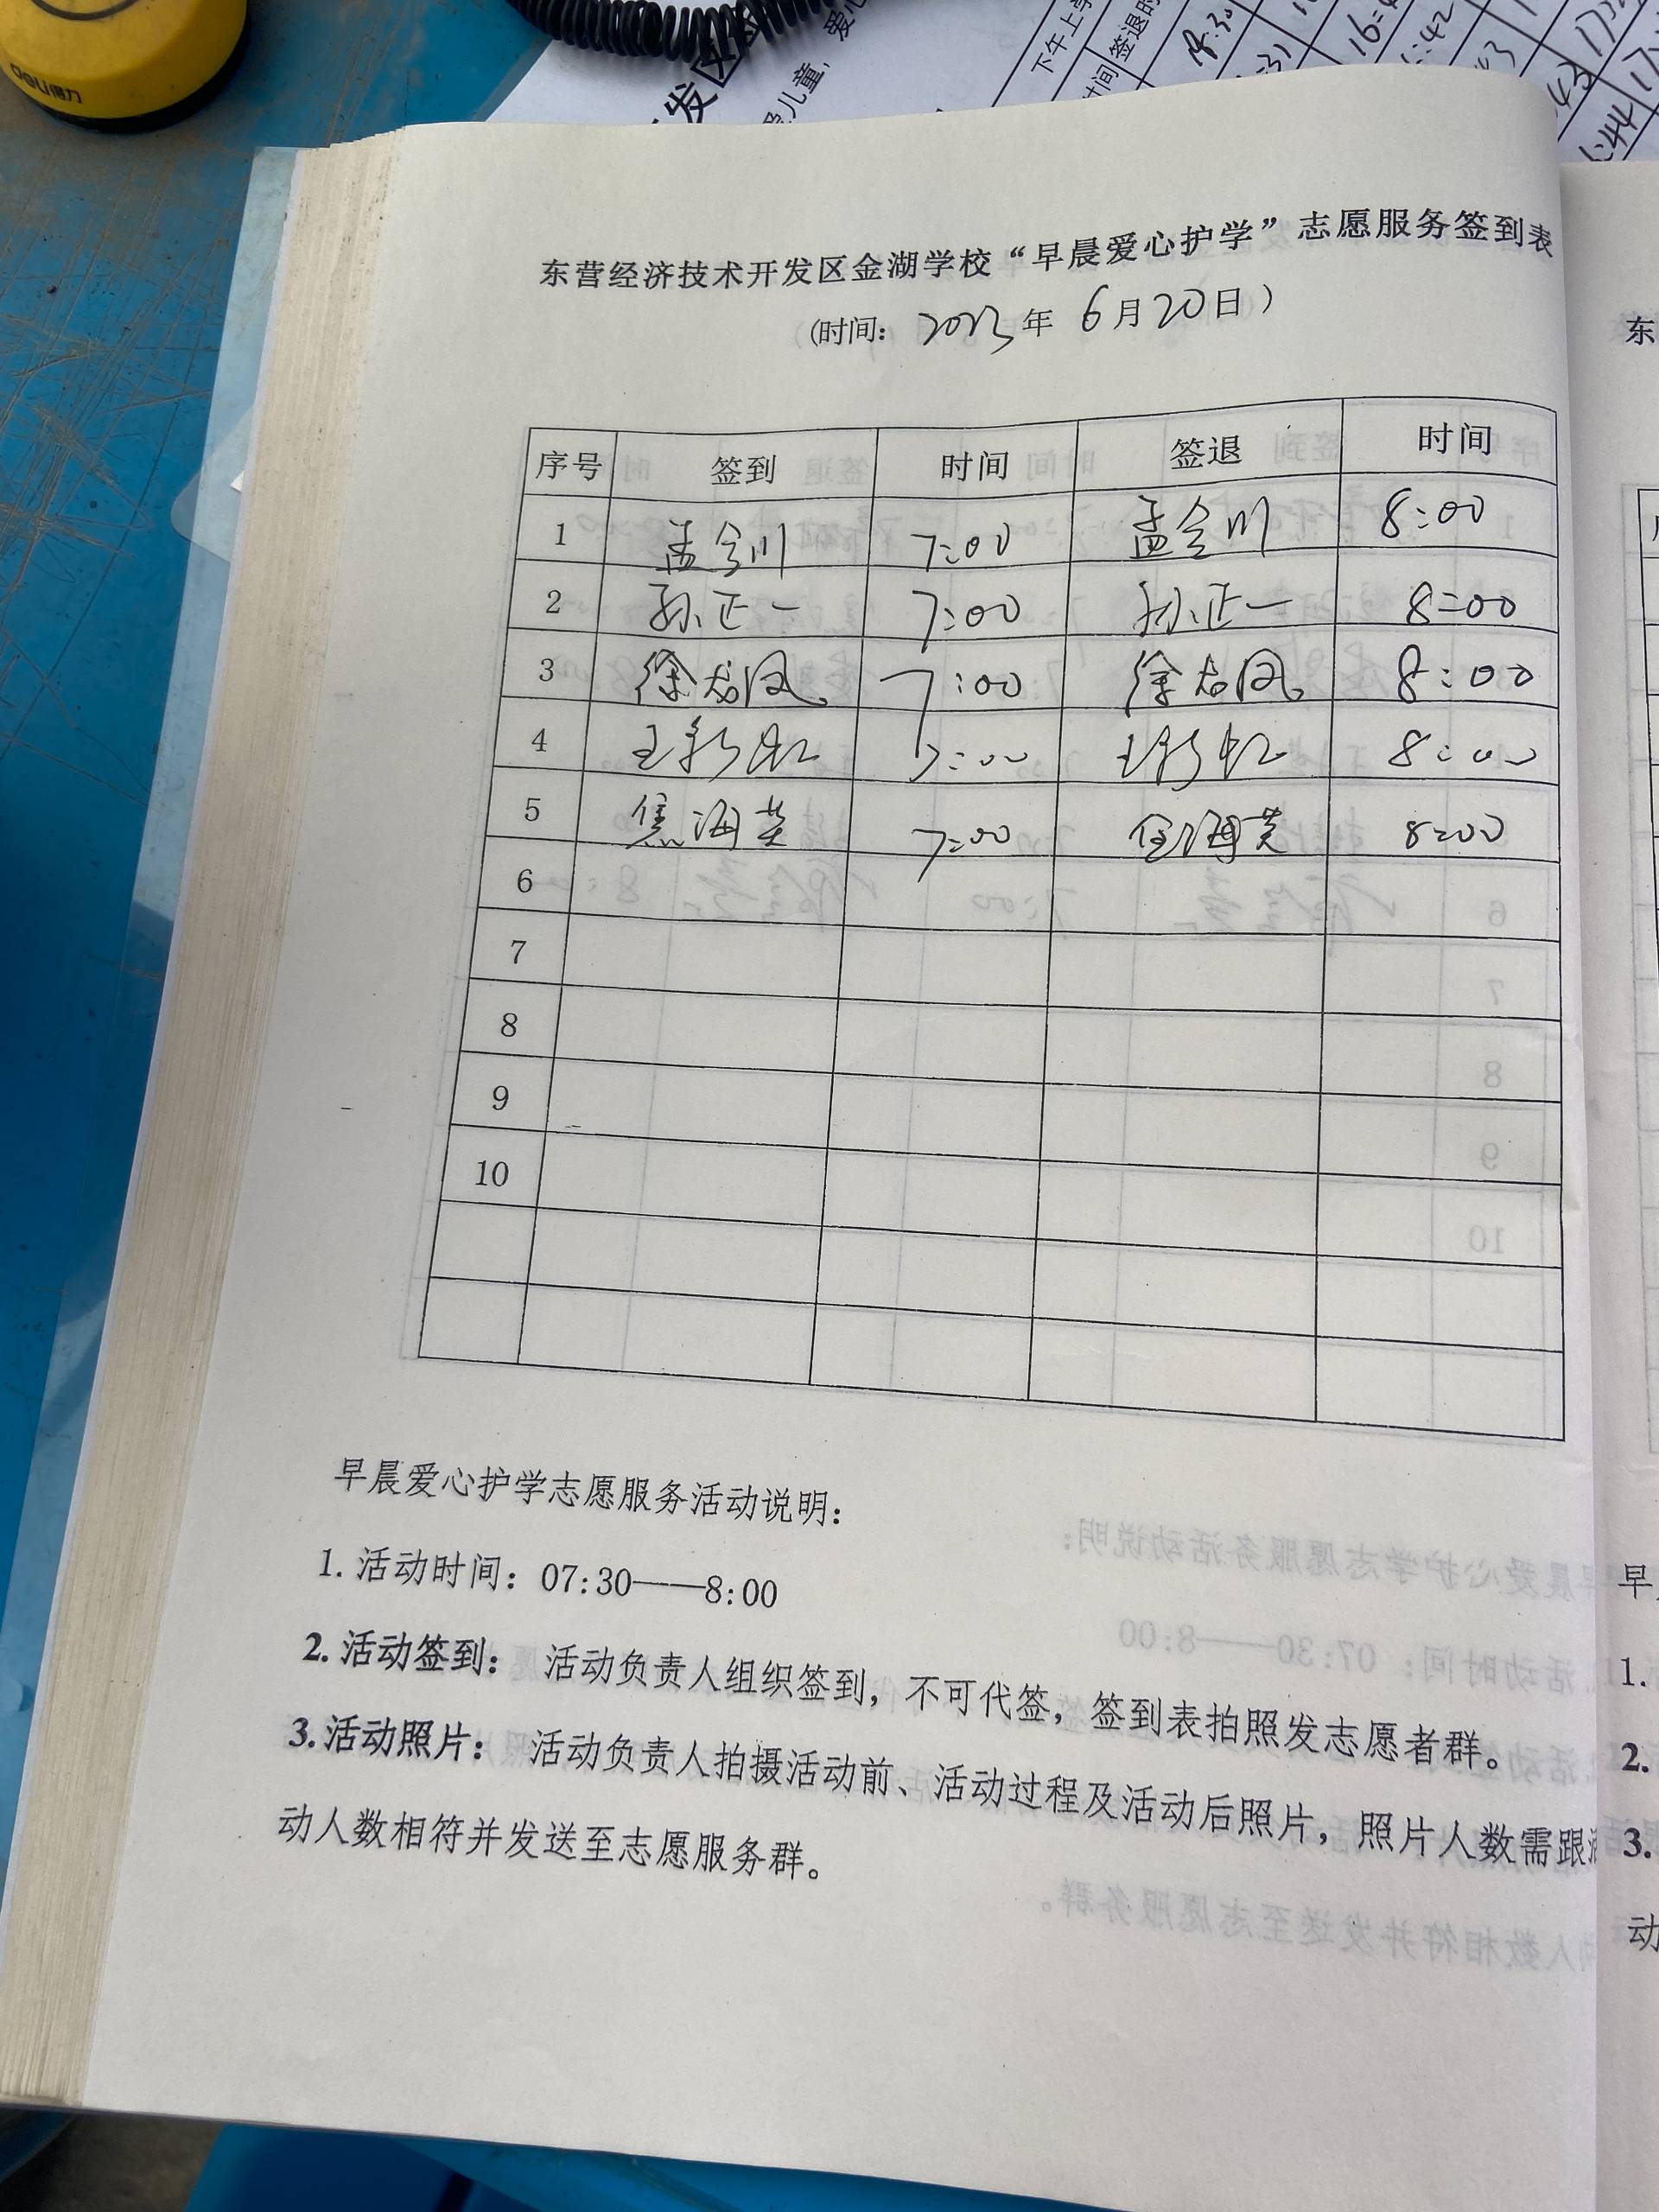 deli得力
发区
爱心
儿童，
下午上学
时间
签退时
东营经济技术开发区金湖学校“早晨爱心护学”志愿服务签到表
(时间: 2023年 6月20日)
序号 签到 时间 签退 时间
1 孟会川 7:00 孟会川 8:00
2 孙正一 7:00 孙正一 8:00
3 徐龙凤 7:00 徐龙凤 8:00
4 王彩虹 7:00 王彩虹 8:00
5 焦海英 7:00 焦海英 8:00
6
7
8
9
10
早晨爱心护学志愿服务活动说明:
1. 活动时间: 07:30——8:00
2. 活动签到: 活动负责人组织签到, 不可代签, 签到表拍照发志愿者群。
3. 活动照片: 活动负责人拍摄活动前、活动过程及活动后照片, 照片人数需跟活
动人数相符并发送至志愿服务群。
东
早
1.
2.
3.
动